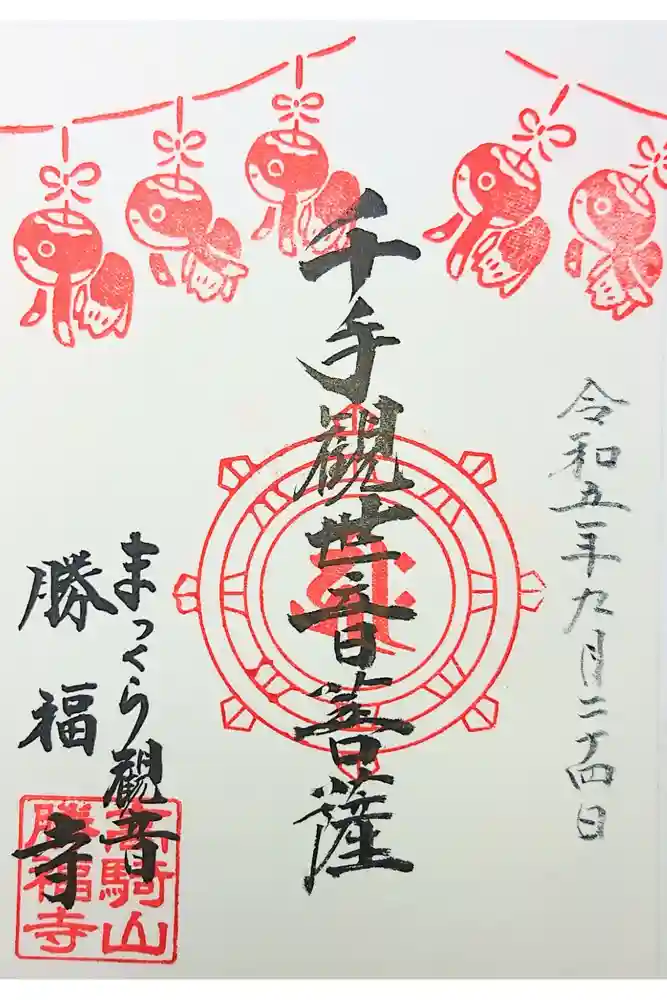 令和五年九月二十四日
千手観世音菩薩
まっくら観音
勝福寺
勝福寺